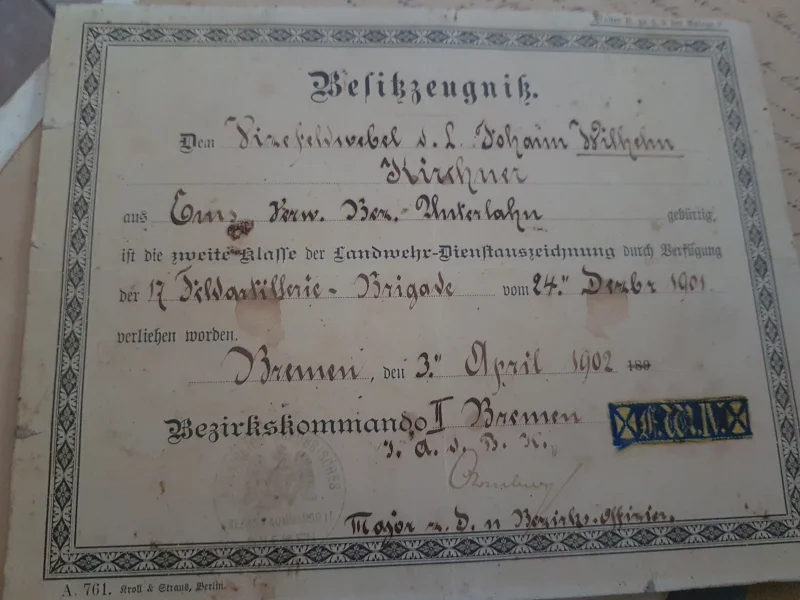 Besitzzeugniß.
Dem Vizefeldwebel d. L. Johann Wilhelm
Kirchner
aus Ems Verw. Bez. Unterlahn gebürtig,
ist die zweite Klasse der Landwehr-Dienstauszeichnung durch Verfügung
der 17 Feldartillerie-Brigade vom 24. Dezbr 1901
verliehen worden.
Bremen, den 3. April 1902 189
Bezirkskommando II Bremen
J. A. d. B. K.
Major z. D. u Bezirks-Offizier.
A. 761. Kroll & Straus, Berlin.